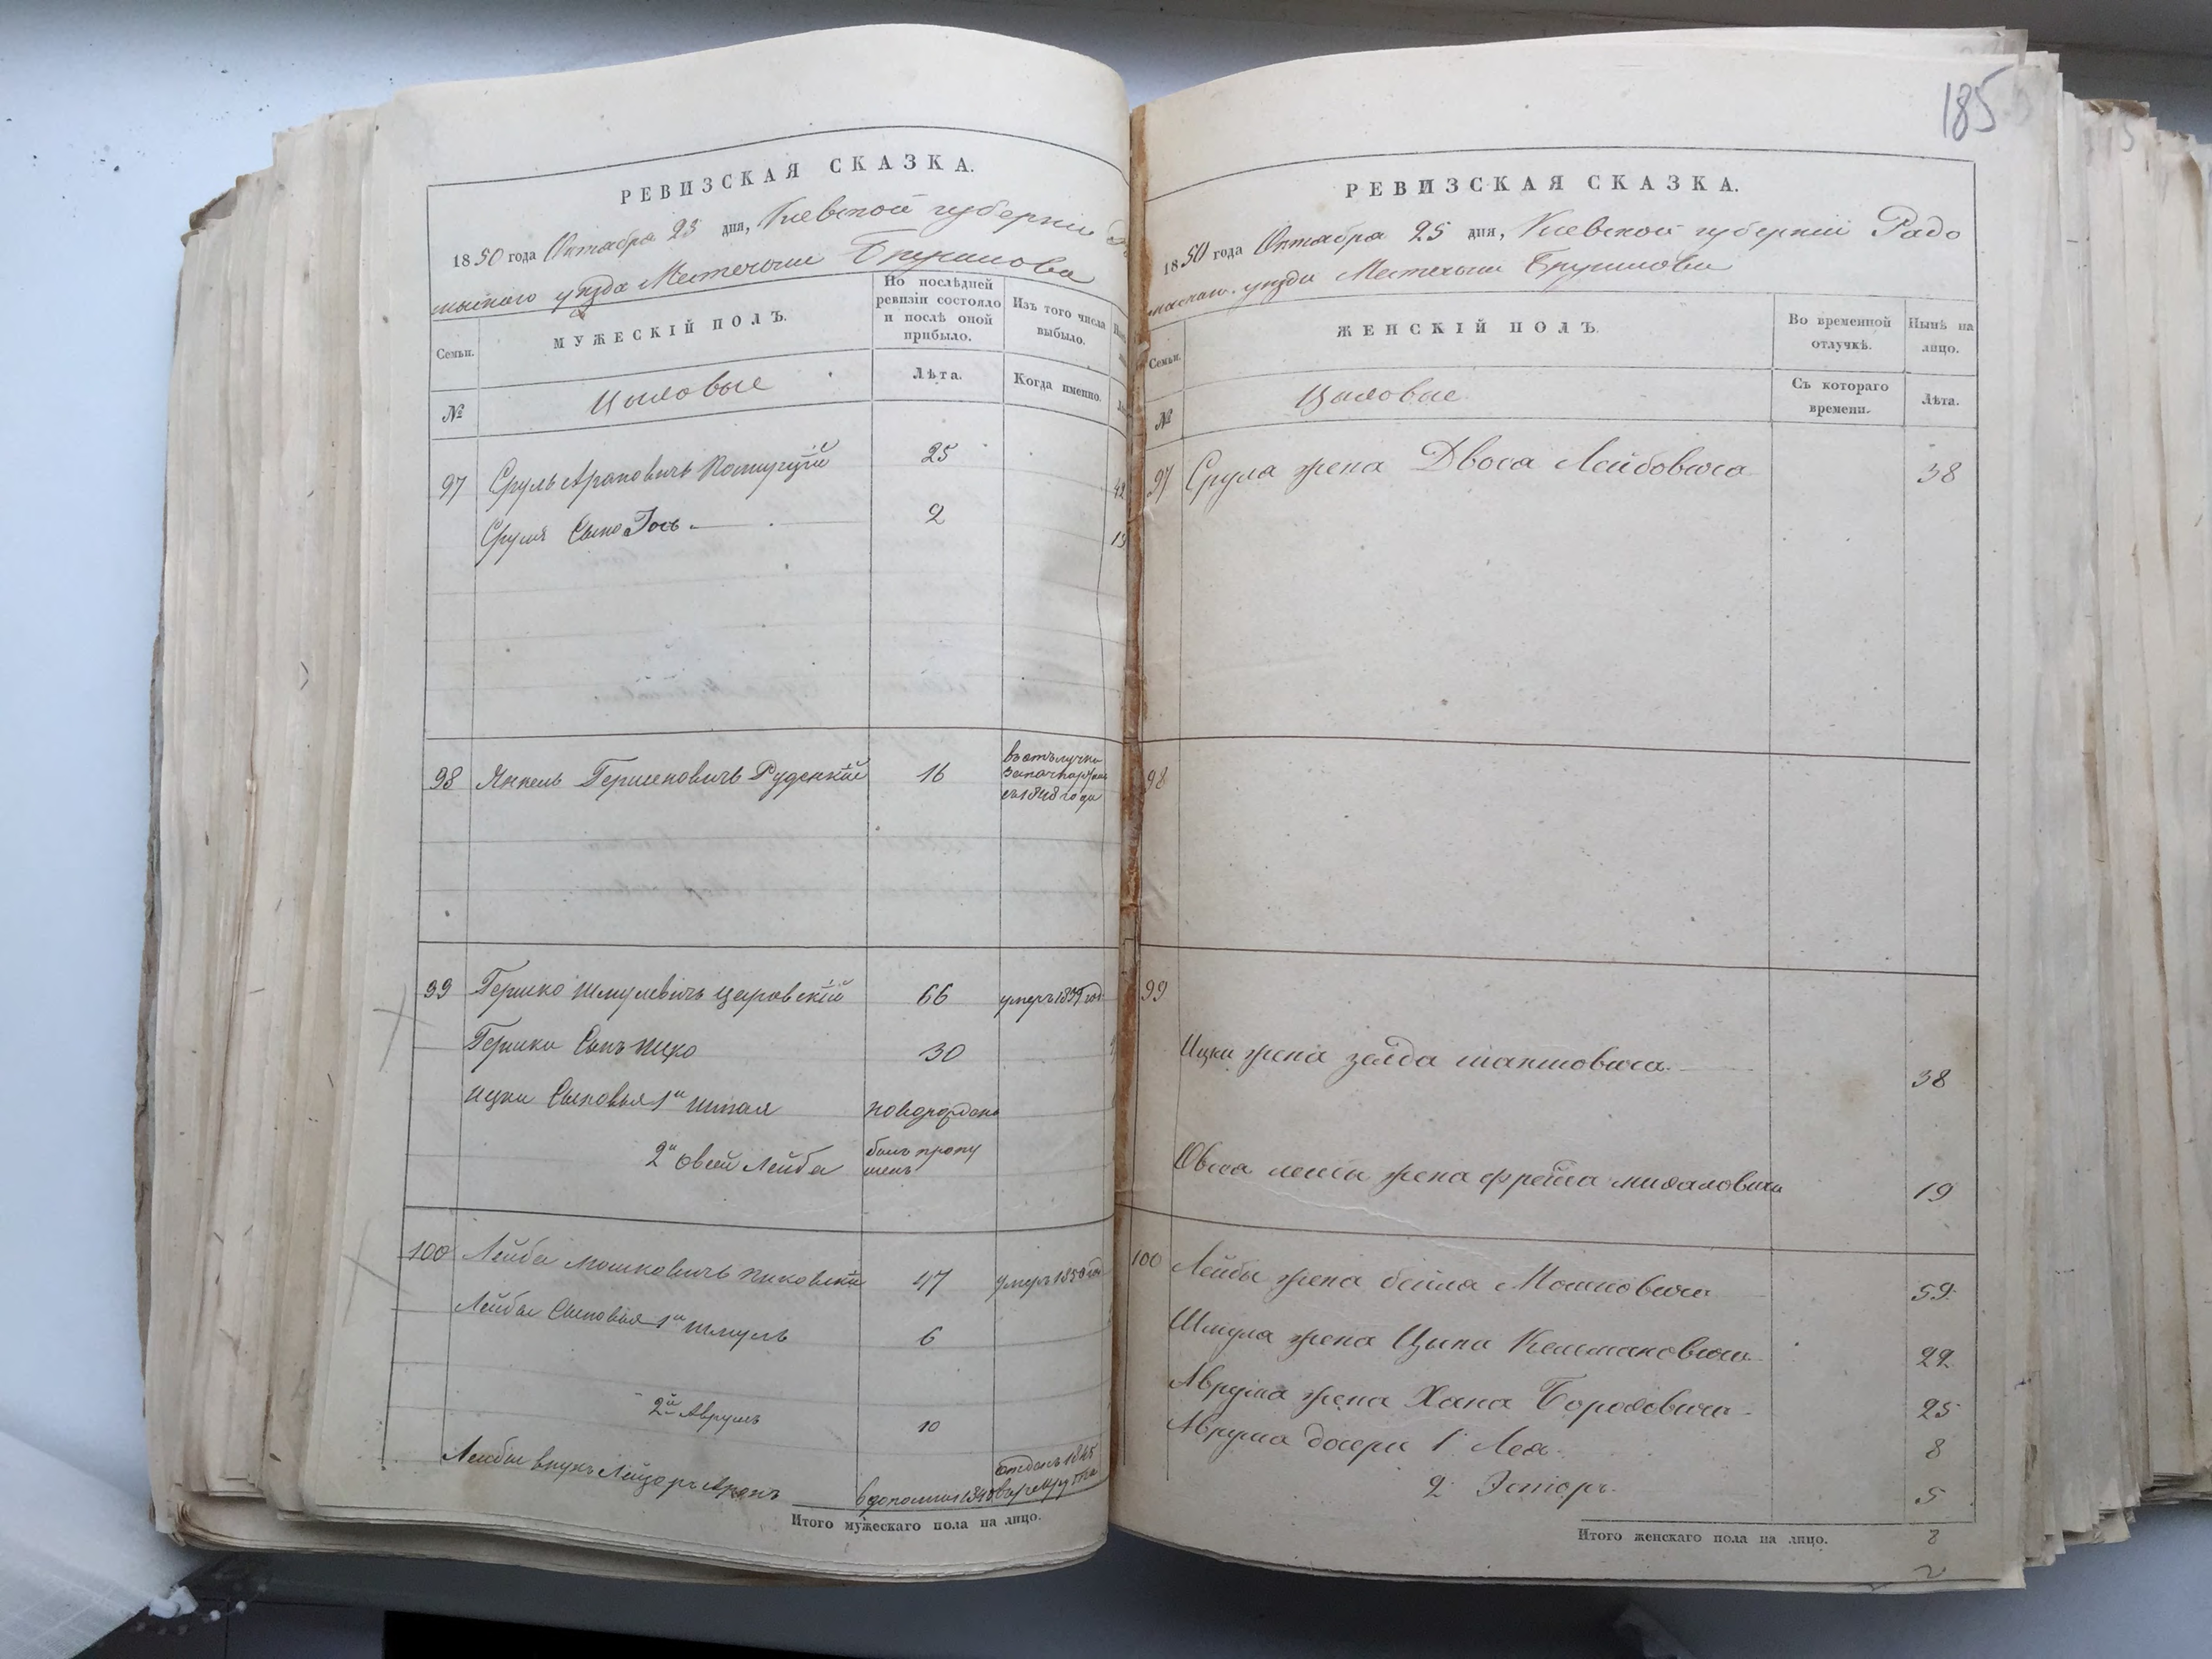 РЕВИЗСКАЯ СКАЗКА.
1850 года Октября 25 дня, Киевской губерніи
мысльского уѣзда Местечки Брусилова
Семьи.
МУЖЕСКІЙ ПОЛЪ.
По послѣдней ревизіи состояло и послѣ оной прибыло.
Изъ того числа выбыло.
№
Цеховые
Лѣта.
Когда именно.
97 Сруль Ароновичъ 25 42
Сруля Сынъ Іось 2 15
98 Янкель Гершковичъ Рудскій 16 въ отлучке
съ 1848 года
99 Гершко Шмулевичъ Царовскій 66 умеръ
Гершки Сынъ Ицко 30
Ицки Сыновья 1й новорожденъ
2й Овсей Лейба былъ пропу
щенъ
100 Лейба Мошковичъ 47 умеръ 1850 год
Лейбы Сыновья 1й Шмуль 6
2й Аврумъ 10
Лейбы внукъ Лейзоръ Аронъ отданъ 1845
Итого мужескаго пола на лицо.
185
РЕВИЗСКАЯ СКАЗКА.
1850 года Октября 25 дня, Киевской губерніи Радо
мысльск. уѣзда Местечки Брусилова
Семьи.
ЖЕНСКІЙ ПОЛЪ.
Во временной отлучкѣ.
Нынѣ на лицо.
№
Цеховые
Съ котораго времени.
Лѣта.
97 Сруля жена Двося Лейбовна 38
98
99
Ицки жена Зелда 38
Овсея Лейбы жена Фрейга 19
100 Лейбы жена Бейла Мошковна 59
Шмуля жена Ципа Кельмановна 22
Аврума жена Хана Борховна 25
Аврума дочери 1 Лея 8
2 Эстеръ 5
Итого женскаго пола на лицо. 8